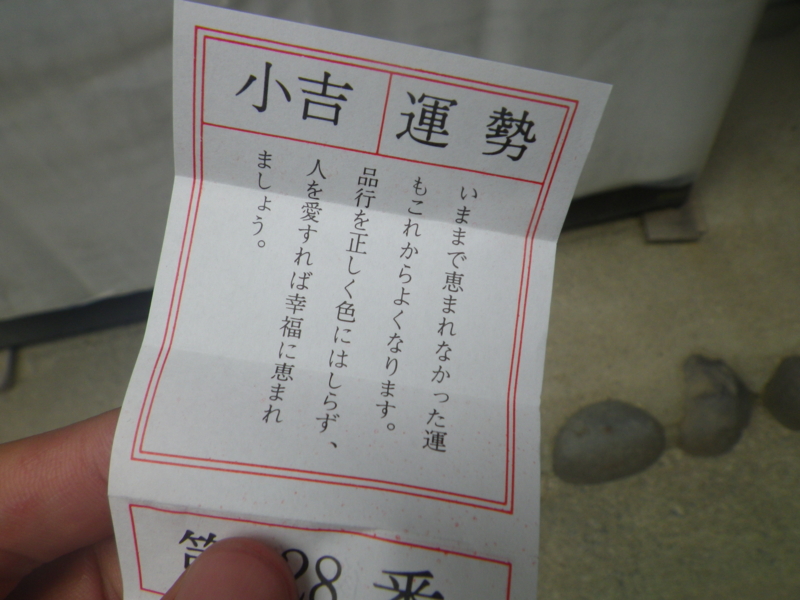 運勢
小吉
いままで恵まれなかった運
もこれからよくなります。
品行を正しく色にはしらず、
人を愛すれば幸福に恵まれ
ましょう。
第28番